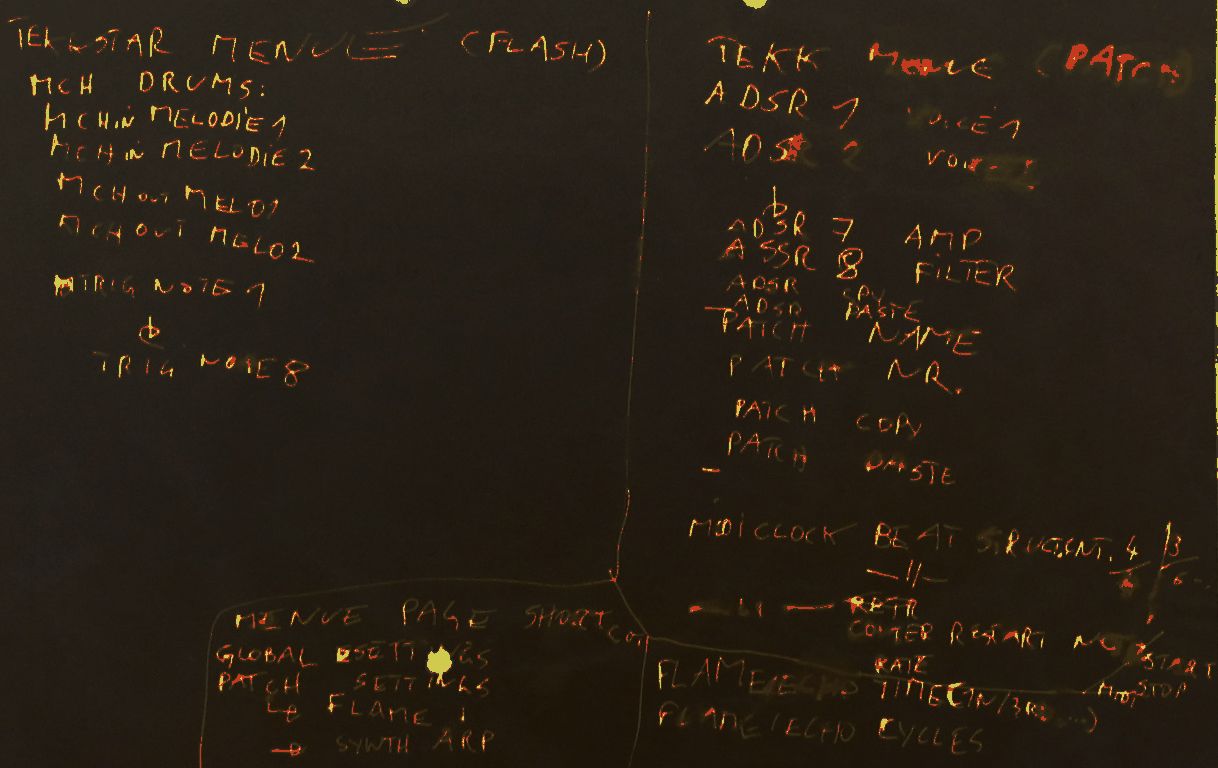 TEKKSTAR MENUE (FLASH)
MCH DRUMS:
MCHIN MELODIE 1
MCHIN MELODIE 2
MCH OUT MELO1
MCH OUT MELO2
TRIG NOTE 1
TRIG NOTE 8
TEKK MENUE (PATCH)
ADSR 1 VOICE 1
ADSR 2 VOICE 2
ADSR 7 AMP
ASSR 8 FILTER
ADSR COPY
ADSR PASTE
PATCH NAME
PATCH NR.
PATCH COPY
PATCH PASTE
MIDICLOCK BEAT 4 3
— 11 —
RETR
RESTART
START
RATE
STOP
FLAME/ECHO TIME
FLAME/ECHO CYCLES
MENUE PAGE SHORTCUT
GLOBAL SETTINGS
PATCH SETTINGS
FLAME
→ SYNTH ARP